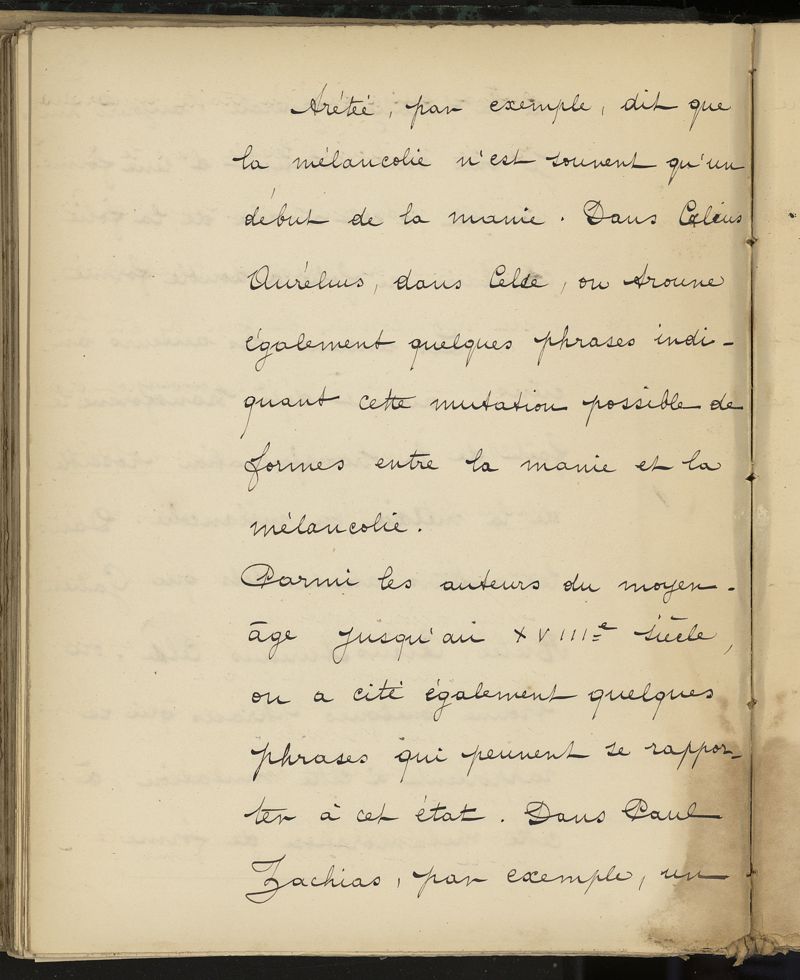 Arétée, par exemple, dit que
la mélancolie n'est souvent qu'un
début de la manie. Dans Cælius
Aurélius, dans Celse, on trouve
également quelques phrases indi-
quant cette mutation possible de
formes entre la manie et la
mélancolie.
Parmi les auteurs du moyen-
âge jusqu'au XVIIIe siècle,
on a cité également quelques
phrases qui peuvent se rappor-
ter à cet état. Dans Paul
Zachias, par exemple, un